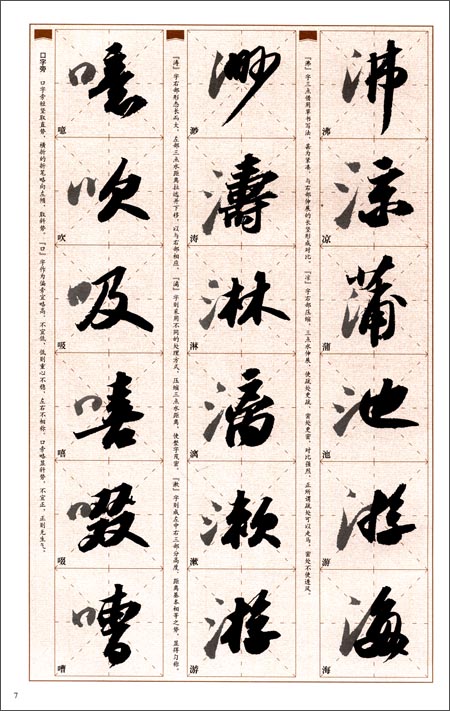 沸 沸
涼 凉
蒲 蒲
池 池
游 游
海 海
『沸』字三点借用草书写法，甚为紧凑，与右部伸展的长竖形成对比。『凉』字右部压缩，三点水伸展，使疏处更疏，密处更密，对比强烈，正所谓疏处可以走马，密处不使透风。
渺 渺
濤 涛
淋 淋
漓 漓
漱 漱
游 游
『涛』字右部形态长而大，左部三点水距离拉远并下移，以与右部相应。『漓』字则采用不同的处理方式，压缩三点水距离，使整字茂密。『漱』字则成左中右三部分高度、距离基本相等之势，显得匀称。
噫 噫
吹 吹
吸 吸
嘻 嘻
啜 啜
嘈 嘈
口字旁 口字旁短竖取直势，横折的折笔略向左倾，取斜势。『口』字作为偏旁宜略高，不宜低，低则重心不稳，左右不相称。口旁略显斜势，不宜正，正则无生气。
7